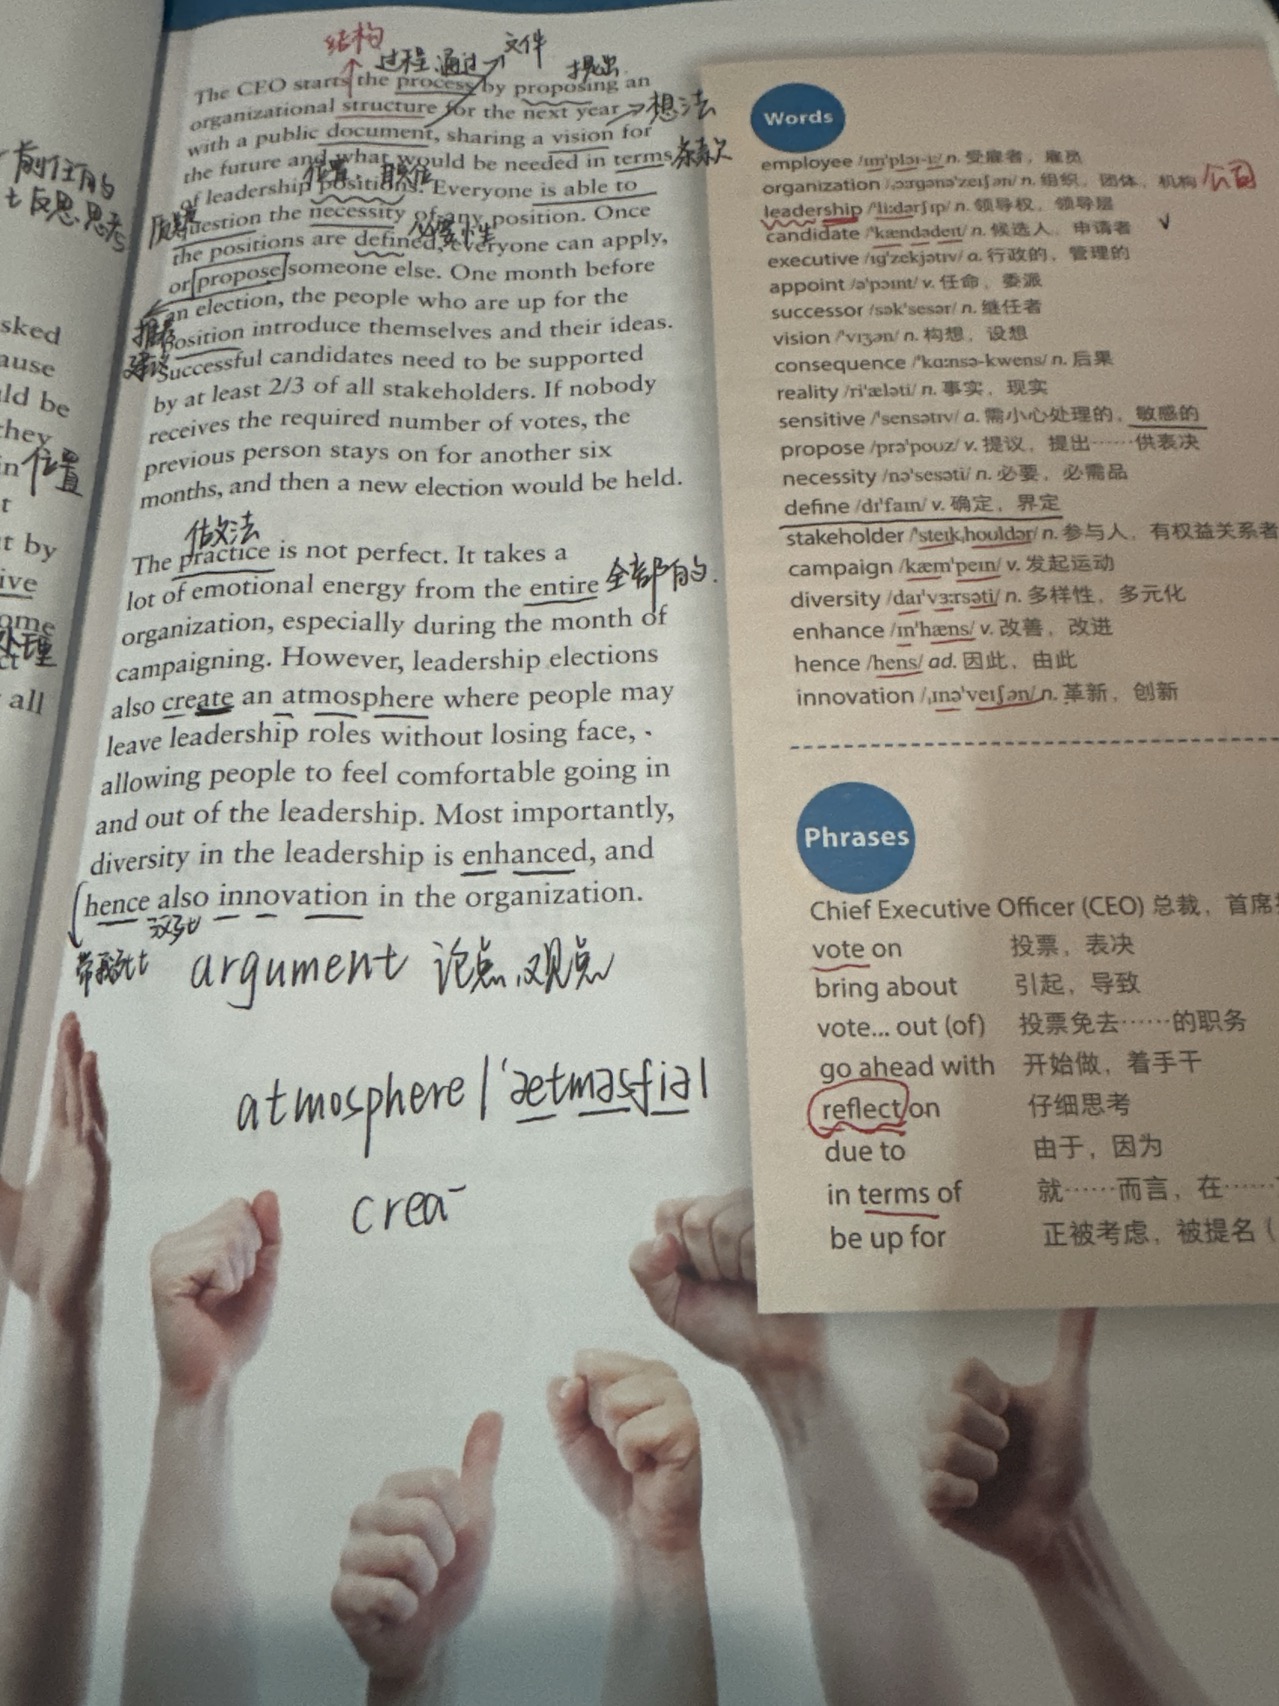 前任的
反思.思考
sked
ause
ld be
they
in 位置
t
t by
ive
ome
处理
ct
all
结构
过程.通过 文件
提出
The CEO starts the process by proposing an
organizational structure for the next year 想法
with a public document, sharing a vision for
the future and what would be needed in terms 条款
位置. 职位
of leadership positions. Everyone is able to
质疑
question the necessity of any position. Once
必要性
the positions are defined, everyone can apply,
or propose someone else. One month before
an election, the people who are up for the
推荐
position introduce themselves and their ideas.
建议
Successful candidates need to be supported
by at least 2/3 of all stakeholders. If nobody
receives the required number of votes, the
previous person stays on for another six
months, and then a new election would be held.
做法
The practice is not perfect. It takes a
lot of emotional energy from the entire 全部的.
organization, especially during the month of
campaigning. However, leadership elections
also create an atmosphere where people may
leave leadership roles without losing face,
allowing people to feel comfortable going in
and out of the leadership. Most importantly,
diversity in the leadership is enhanced, and
hence also innovation in the organization.
argument 论点.观点
atmosphere /'ætməsfiə/
crea
Words
employee /ɪmˈplɔɪ-iː/ n. 受雇者，雇员
organization /ˌɔːrɡənəˈzeɪʃən/ n. 组织，团体，机构 公司
leadership /ˈliːdərʃɪp/ n. 领导权，领导层
candidate /ˈkændədeɪt/ n. 候选人，申请者
executive /ɪɡˈzekjətɪv/ a. 行政的，管理的
appoint /əˈpɔɪnt/ v. 任命，委派
successor /səkˈsesər/ n. 继任者
vision /ˈvɪʒən/ n. 构想，设想
consequence /ˈkɑːnsə-kwens/ n. 后果
reality /riˈæləti/ n. 事实，现实
sensitive /ˈsensətɪv/ a. 需小心处理的，敏感的
propose /prəˈpouz/ v. 提议，提出……供表决
necessity /nəˈsesəti/ n. 必要，必需品
define /dɪˈfaɪn/ v. 确定，界定
stakeholder /ˈsteɪkˌhouldər/ n. 参与人，有权益关系者
campaign /kæmˈpeɪn/ v. 发起运动
diversity /daɪˈvɜːrsəti/ n. 多样性，多元化
enhance /ɪnˈhæns/ v. 改善，改进
hence /hens/ ad. 因此，由此
innovation /ˌɪnəˈveɪʃən/ n. 革新，创新
Phrases
Chief Executive Officer (CEO) 总裁，首席
vote on 投票，表决
bring about 引起，导致
vote... out (of) 投票免去……的职务
go ahead with 开始做，着手干
reflect on 仔细思考
due to 由于，因为
in terms of 就……而言，在……
be up for 正被考虑，被提名（